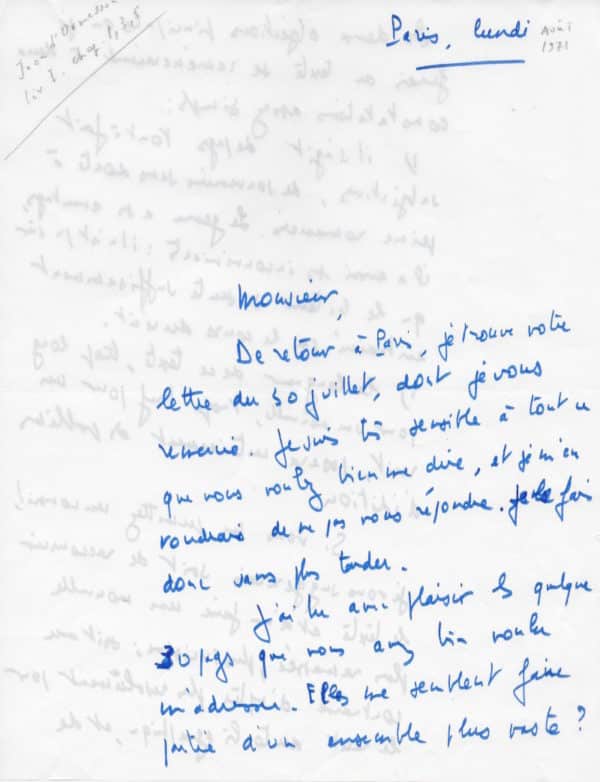 Paris, lundi
1971
Monsieur,
De retour à Paris, je trouve votre
lettre du 30 juillet, dont je vous
remercie. Je suis très sensible à tout ce
que vous voulez bien me dire, et je m'en
voudrais de ne pas vous répondre. Je le fais
donc sans plus tarder.
J'ai lu avec plaisir les quelque
30 pages que vous avez bien voulu
m'adresser. Elles me semblent faire
partie d'un ensemble plus vaste ?